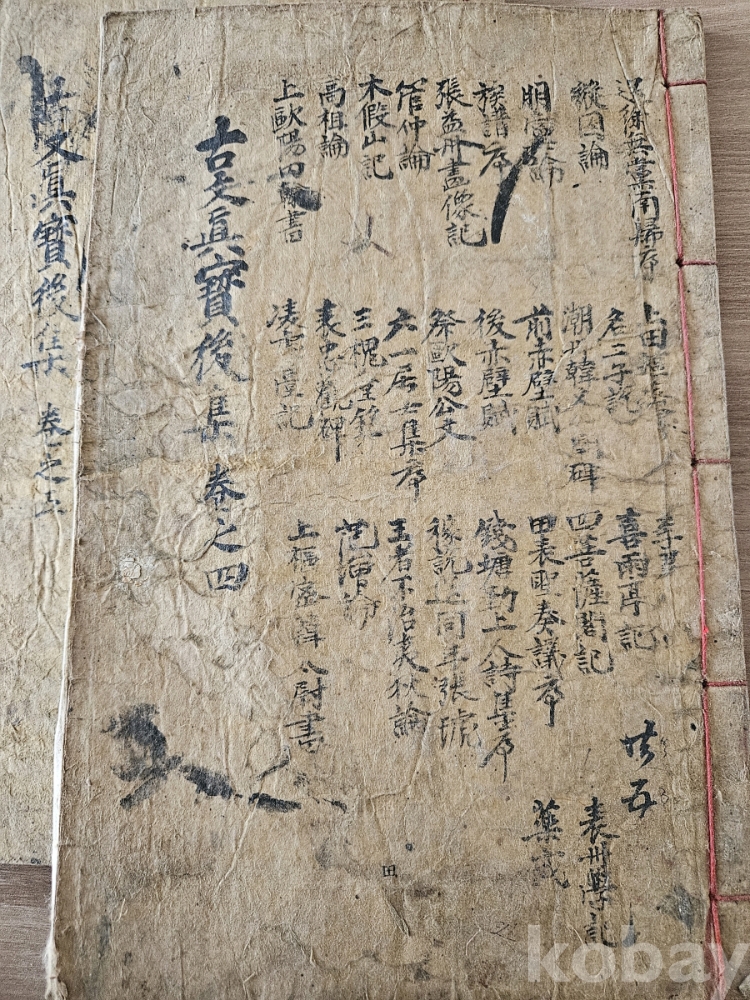 送徐無黨南歸序
縱囚論
族譜序
張益州畫像記
管仲論
木假山記
高祖論
上歐陽書
上田樞密
名二子說
潮州韓文公碑
前赤壁賦
後赤壁賦
祭歐陽公文
六一居士集序
三槐堂銘
表忠觀碑
凌虛臺記
喜雨亭記
四菩薩閣記
田表聖奏議序
錢塘勤上人詩集序
稼說送同年張琥
王者不治夷狄論
范增論
上樞密韓太尉書
共五
袁州學記
藥戒
古文眞寶後集 卷之四
田
古文眞寶後集 卷之五
kobay